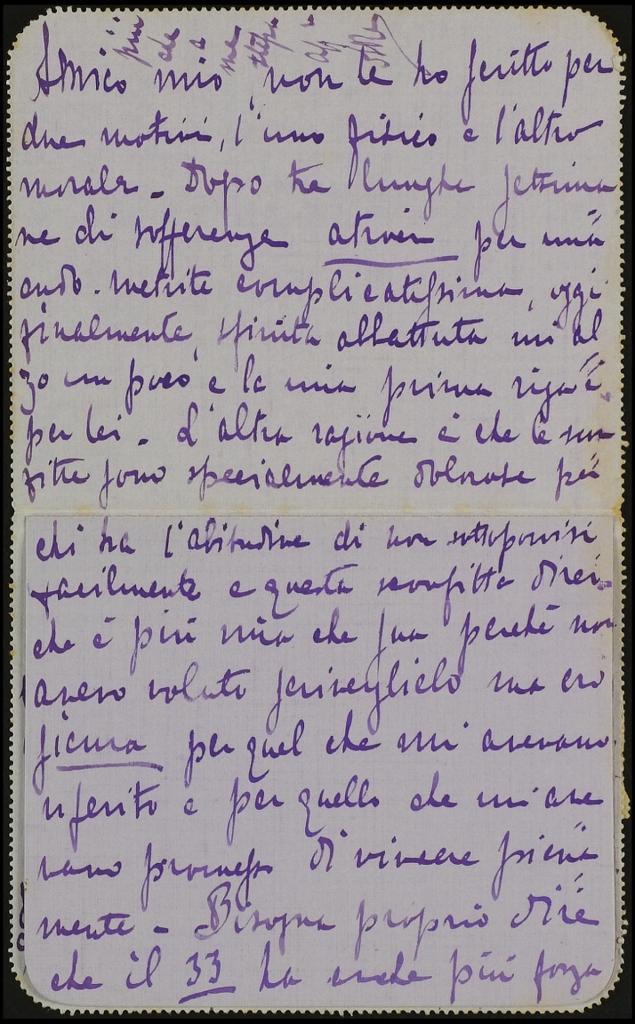 Amico mio, non le ho scritto per
due motivi, l'uno fisico e l'altro
morale - Dopo tre lunghe settima
ne di sofferenze atroci per una
endo-metrite complicatissima, oggi
finalmente, sfinita abbattuta mi al
zo un poco e la mia prima riga è
per lei - L'altra ragione è che le scon
fitte sono specialmente dolorose per
chi ha l'abitudine di non sottoporvisi
facilmente e questa sconfitta direi
che è più mia che sua perchè non
avevo voluto scriveglielo ma ero
sicura per quel che mi avevano
riferito e per quello che mi ave
vano promesso di vincere piena
mente - Bisogna proprio dire
che il 33 ha anche più forza
più
che
a
me